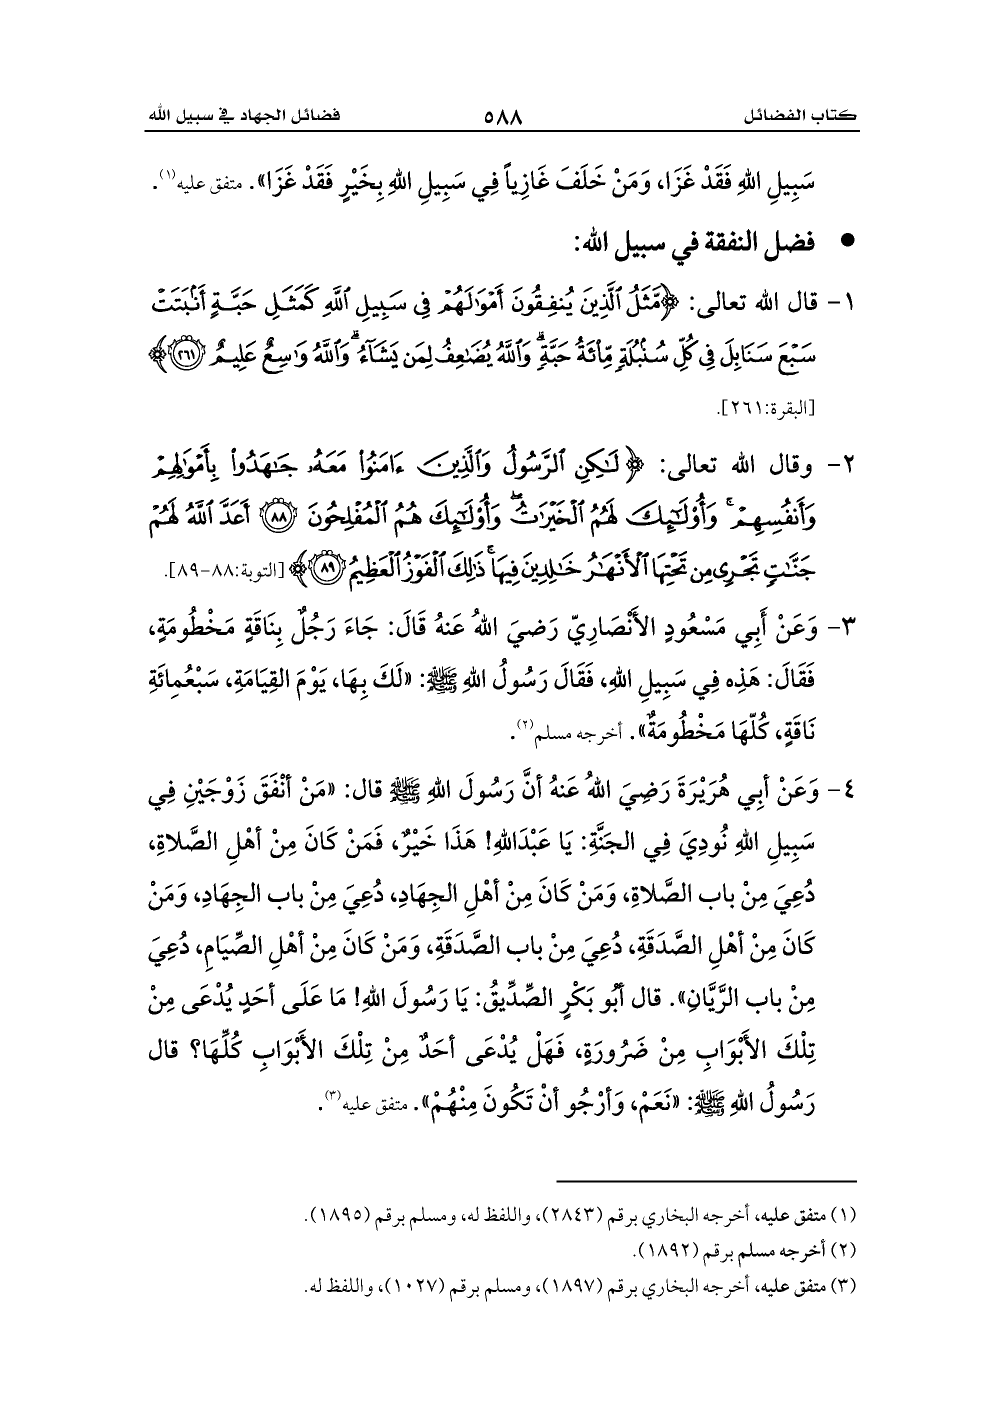 كتاب الفضائل ٥٨٨ فضائل الجهاد في سبيل الله
سَبِيلِ اللهِ فَقَدْ غَزَا، وَمَنْ خَلَفَ غَازِياً فِي سَبِيلِ اللهِ بِخَيْرٍ فَقَدْ غَزَا». متفق عليه(١).
● فضل النفقة في سبيل الله:
١- قال الله تعالى: ﴿مَّثَلُ ٱلَّذِينَ يُنفِقُونَ أَمْوَٰلَهُمْ فِى سَبِيلِ ٱللَّهِ كَمَثَلِ حَبَّةٍ أَنۢبَتَتْ
سَبْعَ سَنَابِلَ فِى كُلِّ سُنۢبُلَةٍ مِّا۟ئَةُ حَبَّةٍ ۗ وَٱللَّهُ يُضَٰعِفُ لِمَن يَشَآءُ ۗ وَٱللَّهُ وَٰسِعٌ عَلِيمٌ ٢٦١﴾
[البقرة:٢٦١].
٢- وقال الله تعالى: ﴿لَٰكِنِ ٱلرَّسُولُ وَٱلَّذِينَ ءَامَنُوا۟ مَعَهُۥ جَٰهَدُوا۟ بِأَمْوَٰلِهِمْ
وَأَنفُسِهِمْ ۚ وَأُو۟لَٰٓئِكَ لَهُمُ ٱلْخَيْرَٰتُ ۖ وَأُو۟لَٰٓئِكَ هُمُ ٱلْمُفْلِحُونَ ٨٨ أَعَدَّ ٱللَّهُ لَهُمْ
جَنَّٰتٍ تَجْرِى مِن تَحْتِهَا ٱلْأَنْهَٰرُ خَٰلِدِينَ فِيهَا ۚ ذَٰلِكَ ٱلْفَوْزُ ٱلْعَظِيمُ ٨٩﴾ [التوبة:٨٨-٨٩].
٣- وَعَنْ أَبِي مَسْعُودٍ الأَنْصَارِيّ رَضيَ اللهُ عَنهُ قَالَ: جَاءَ رَجُلٌ بِنَاقَةٍ مَخْطُومَةٍ،
فَقَالَ: هَذِه فِي سَبِيلِ اللهِ، فَقَالَ رَسُولُ اللهِ ﷺ: «لَكَ بِهَا، يَوْمَ القِيَامَةِ، سَبْعُمِائَةِ
نَاقَةٍ، كُلّهَا مَخْطُومَةٌ». أخرجه مسلم(٢).
٤- وَعَنْ أبِي هُرَيْرَةَ رَضِيَ اللهُ عَنهُ أنَّ رَسُولَ اللهِ ﷺ قال: «مَنْ أنْفَقَ زَوْجَيْنِ فِي
سَبِيلِ اللهِ نُودِيَ فِي الجَنَّةِ: يَا عَبْدَاللهِ! هَذَا خَيْرٌ، فَمَنْ كَانَ مِنْ أهْلِ الصَّلاةِ،
دُعِيَ مِنْ باب الصَّلاةِ، وَمَنْ كَانَ مِنْ أهْلِ الجِهَادِ، دُعِيَ مِنْ باب الجِهَادِ، وَمَنْ
كَانَ مِنْ أهْلِ الصَّدَقَةِ، دُعِيَ مِنْ باب الصَّدَقَةِ، وَمَنْ كَانَ مِنْ أهْلِ الصِّيَامِ، دُعِيَ
مِنْ باب الرَّيَّانِ». قال أبُو بَكْرٍ الصِّدِّيقُ: يَا رَسُولَ اللهِ! مَا عَلَى أحَدٍ يُدْعَى مِنْ
تِلْكَ الأبْوَابِ مِنْ ضَرُورَةٍ، فَهَلْ يُدْعَى أحَدٌ مِنْ تِلْكَ الأبْوَابِ كُلِّهَا؟ قال
رَسُولُ اللهِ ﷺ: «نَعَمْ، وَأرْجُو أنْ تَكُونَ مِنْهُمْ». متفق عليه(٣).
(١) متفق عليه، أخرجه البخاري برقم (٢٨٤٣)، واللفظ له، ومسلم برقم (١٨٩٥).
(٢) أخرجه مسلم برقم (١٨٩٢).
(٣) متفق عليه، أخرجه البخاري برقم (١٨٩٧)، ومسلم برقم (١٠٢٧)، واللفظ له.